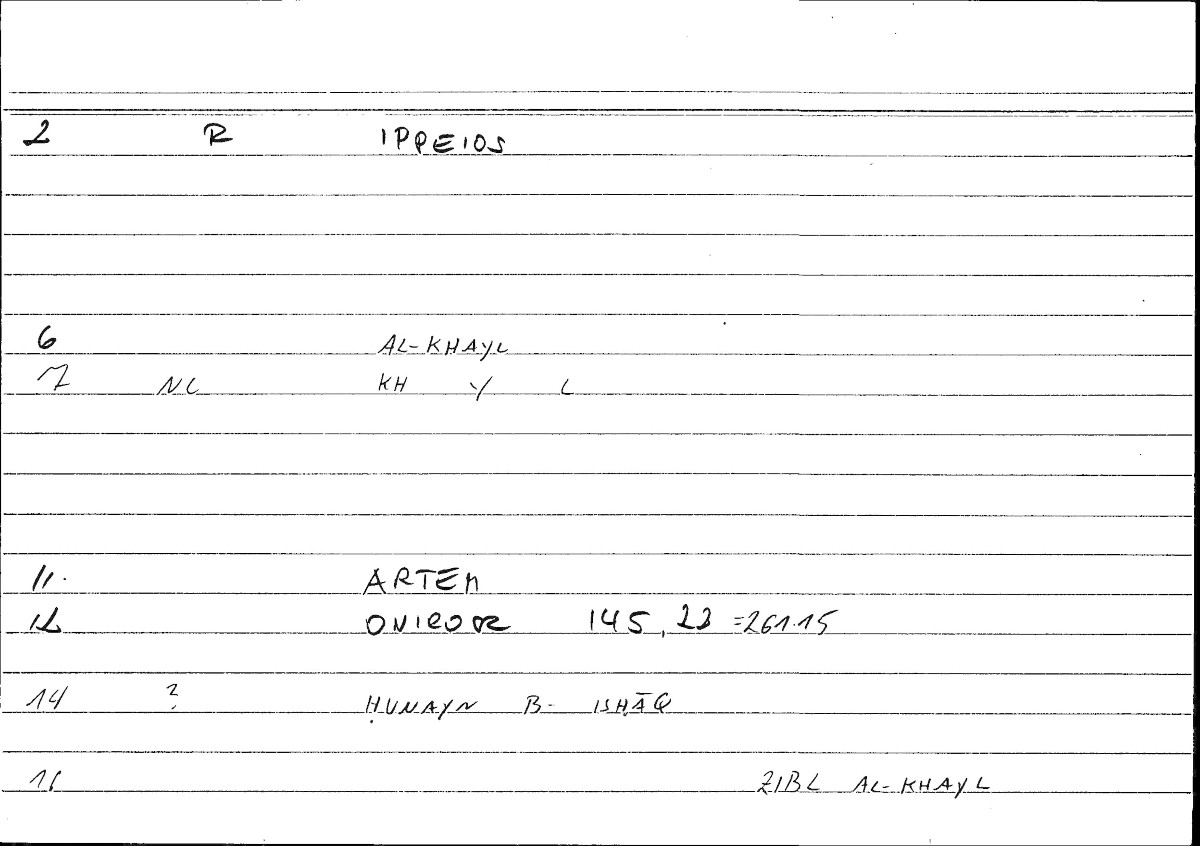 2 R IPPEIOS
6 AL-KHAYL
7 NL KH Y L
11. ARTEM
12 ONIROCR 145,22 =261.15
14 ? ḤUNAYN B- ISḤĀQ
16 ZIBL AL-KHAYL